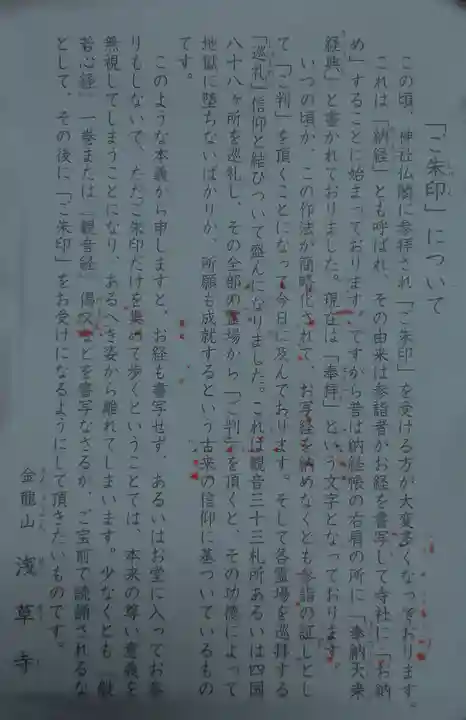 「ご朱印」について
この頃、神社仏閣に参拝され「ご朱印」を受ける方が大変多くなっております。
これは「納経」とも呼ばれ、その由来は参詣者がお経を書写して寺社に「お納
め」することに始まっております。ですから昔は納経帳の右肩の所に「奉納大乗
経典」と書かれておりました。現在は「奉拝」という文字となっております。
いつの頃か、この作法が簡略化されて、お写経を納めなくとも参詣の証しとし
て「ご判」を頂くことになって今日に及んでおります。そして各霊場を巡拝する
「巡礼」信仰と結びついて盛んになりました。これは観音三十三札所あるいは四国
八十八ヶ所を巡礼し、その全部の霊場から「ご判」を頂くと、その功徳によって
地獄に堕ちないばかりか、所願も成就するという古来の信仰に基づいているもの
です。
このような本義から申しますと、お経も書写せず、あるいはお堂に入ってお参
りもしないで、ただご朱印だけを集めて歩くということでは、本来の尊い意義を
無視してしまうことになり、あるべき姿から離れてしまいます。少なくとも「般
若心経」一巻または「観音経」偈文などを書写なさるか、ご宝前で読誦されるな
どとして、その後に「ご朱印」をお受けになるようにして頂きたいものです。
金龍山 浅草寺